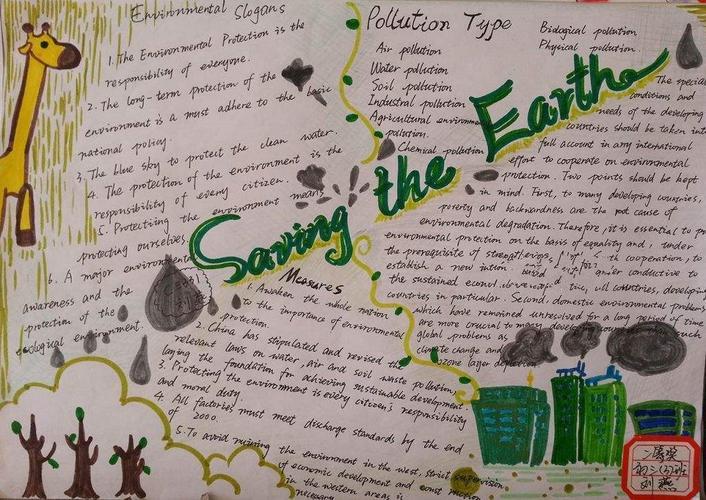 Environmental Slogans
1. The Environmental Protection is the
responsibility of everyone.
2. The long-term protection of the
environment is a must adhere to the basic
national policy.
3. The blue sky to protect the clean water.
4. The protection of the environment is the
responsibility of every citizen.
5. Protecting the environment means
protecting ourselves.
6. A major environmental
awareness and the
protection of the
ecological environment.
Saving the Earth
Pollution Type
Air pollution
Water pollution
Soil pollution
Industral pollution
Agricultural environment
pollution.
Chemical pollution
Biological pollution
Physical pollution.
The special
conditions and
needs of the developing
countries should be taken into
full account in any international
effort to cooperate on environmental
problems. Two points should be kept
in mind. First, to many developing countries,
poverty and backwardness are the root cause of
environmental degradation. Therefore, it is essential to
environmental protection on the basis of equality and, under
the prerequisite of cooperation, to
establish a new conducive to
the sustained countries, developing
countries in particular. Second, domestic environmental problems
which have remained unresolved for a long period of time
are more crucial to many such
global problems as
climate change and
ozone layer
Measures
1. Awaken the whole nation
to the importance of environmental
protection.
2. China has stipulated and revised the
relevant laws on water, air and soil waste pollution,
laying the foundation for achieving sustainable development.
3. Protecting the environment is every citizen's responsibility
and moral duty.
4. All factories must meet discharge standards by the end
of 2000.
5. To avoid ruining the environment in the west, strict supervision
of economic development and construction
in the western areas is
necessary.